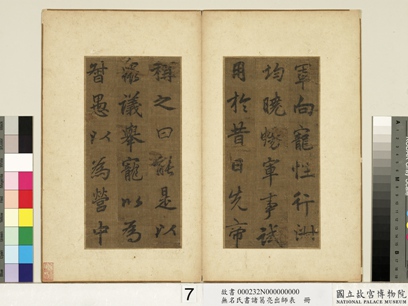 軍向寵性行淑
均曉暢軍事試
用於昔日先帝
稱之曰能是以
衆議舉寵以為
督愚以為營中
7
故書 000232N000000000
無名氏書諸葛亮出師表 冊
國立故宮博物院
NATIONAL PALACE MUSEUM